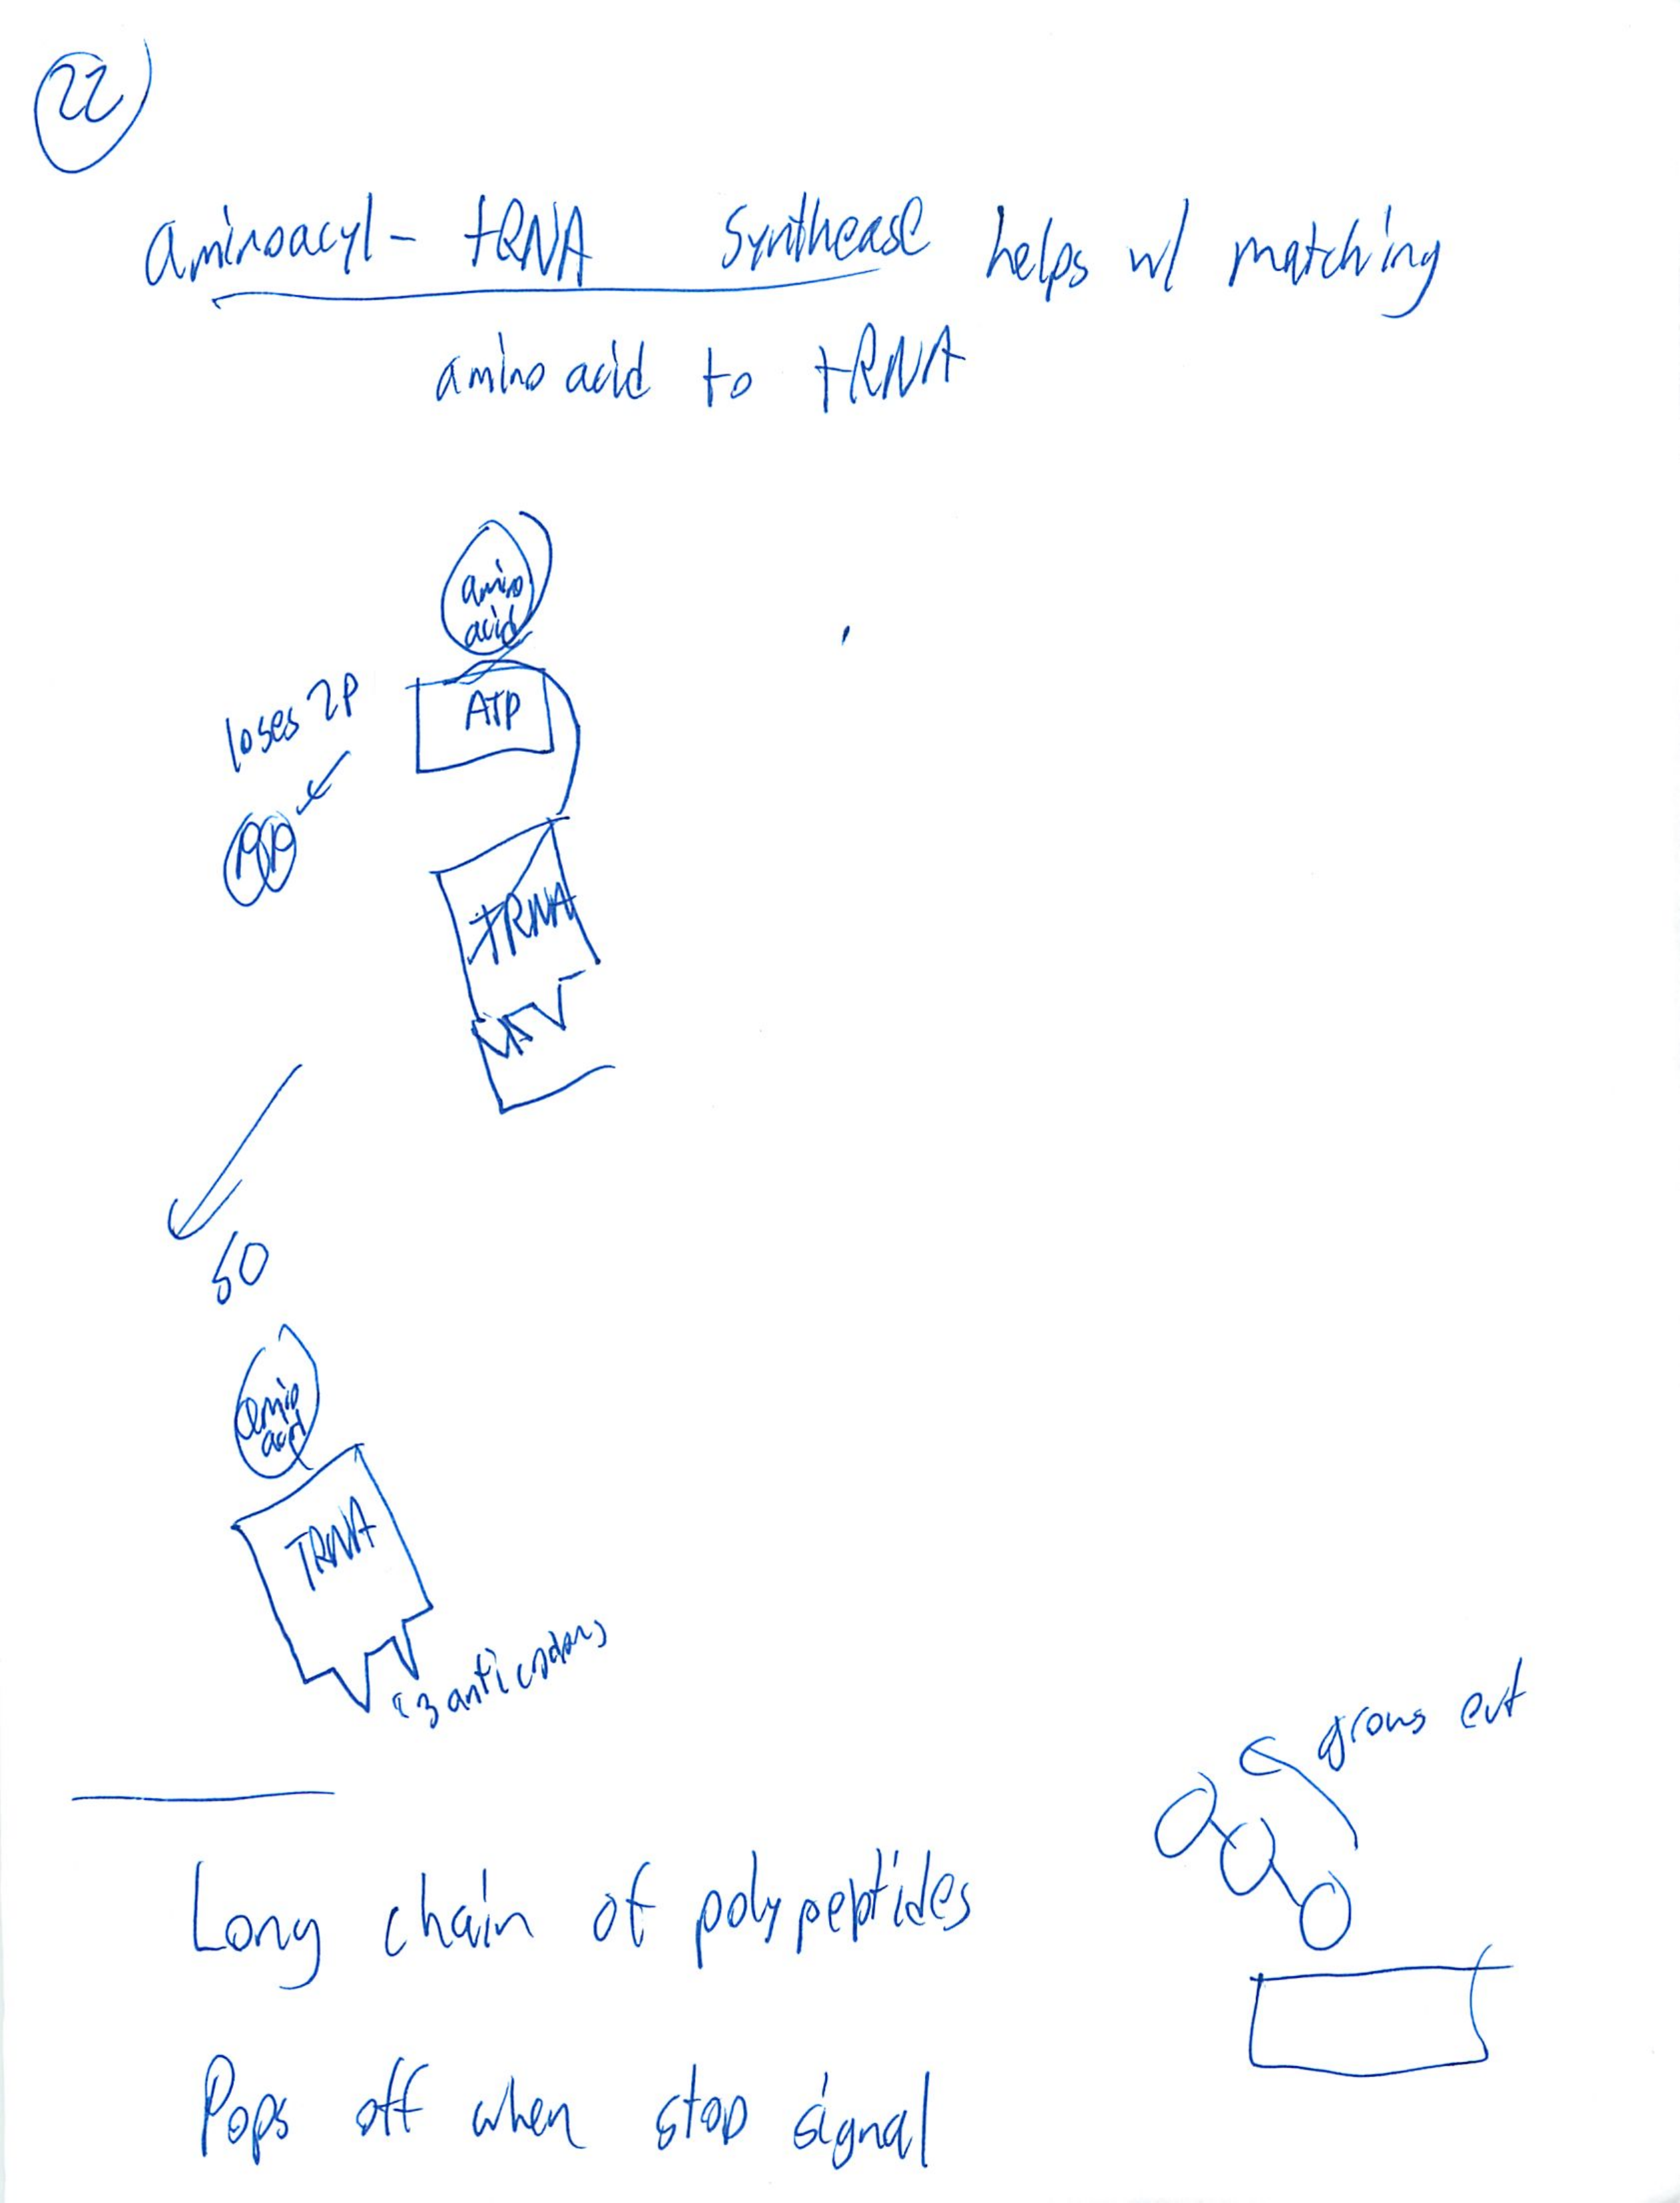 22
aminoacyl- tRNA synthease helps w/ matching
amino acid to tRNA
amino
acid
ATP
loses 2P
PP
tRNA
so
amino
acid
TRNA
3 anticodons
grows out
Long chain of polypeptides
Pops off when stop signal